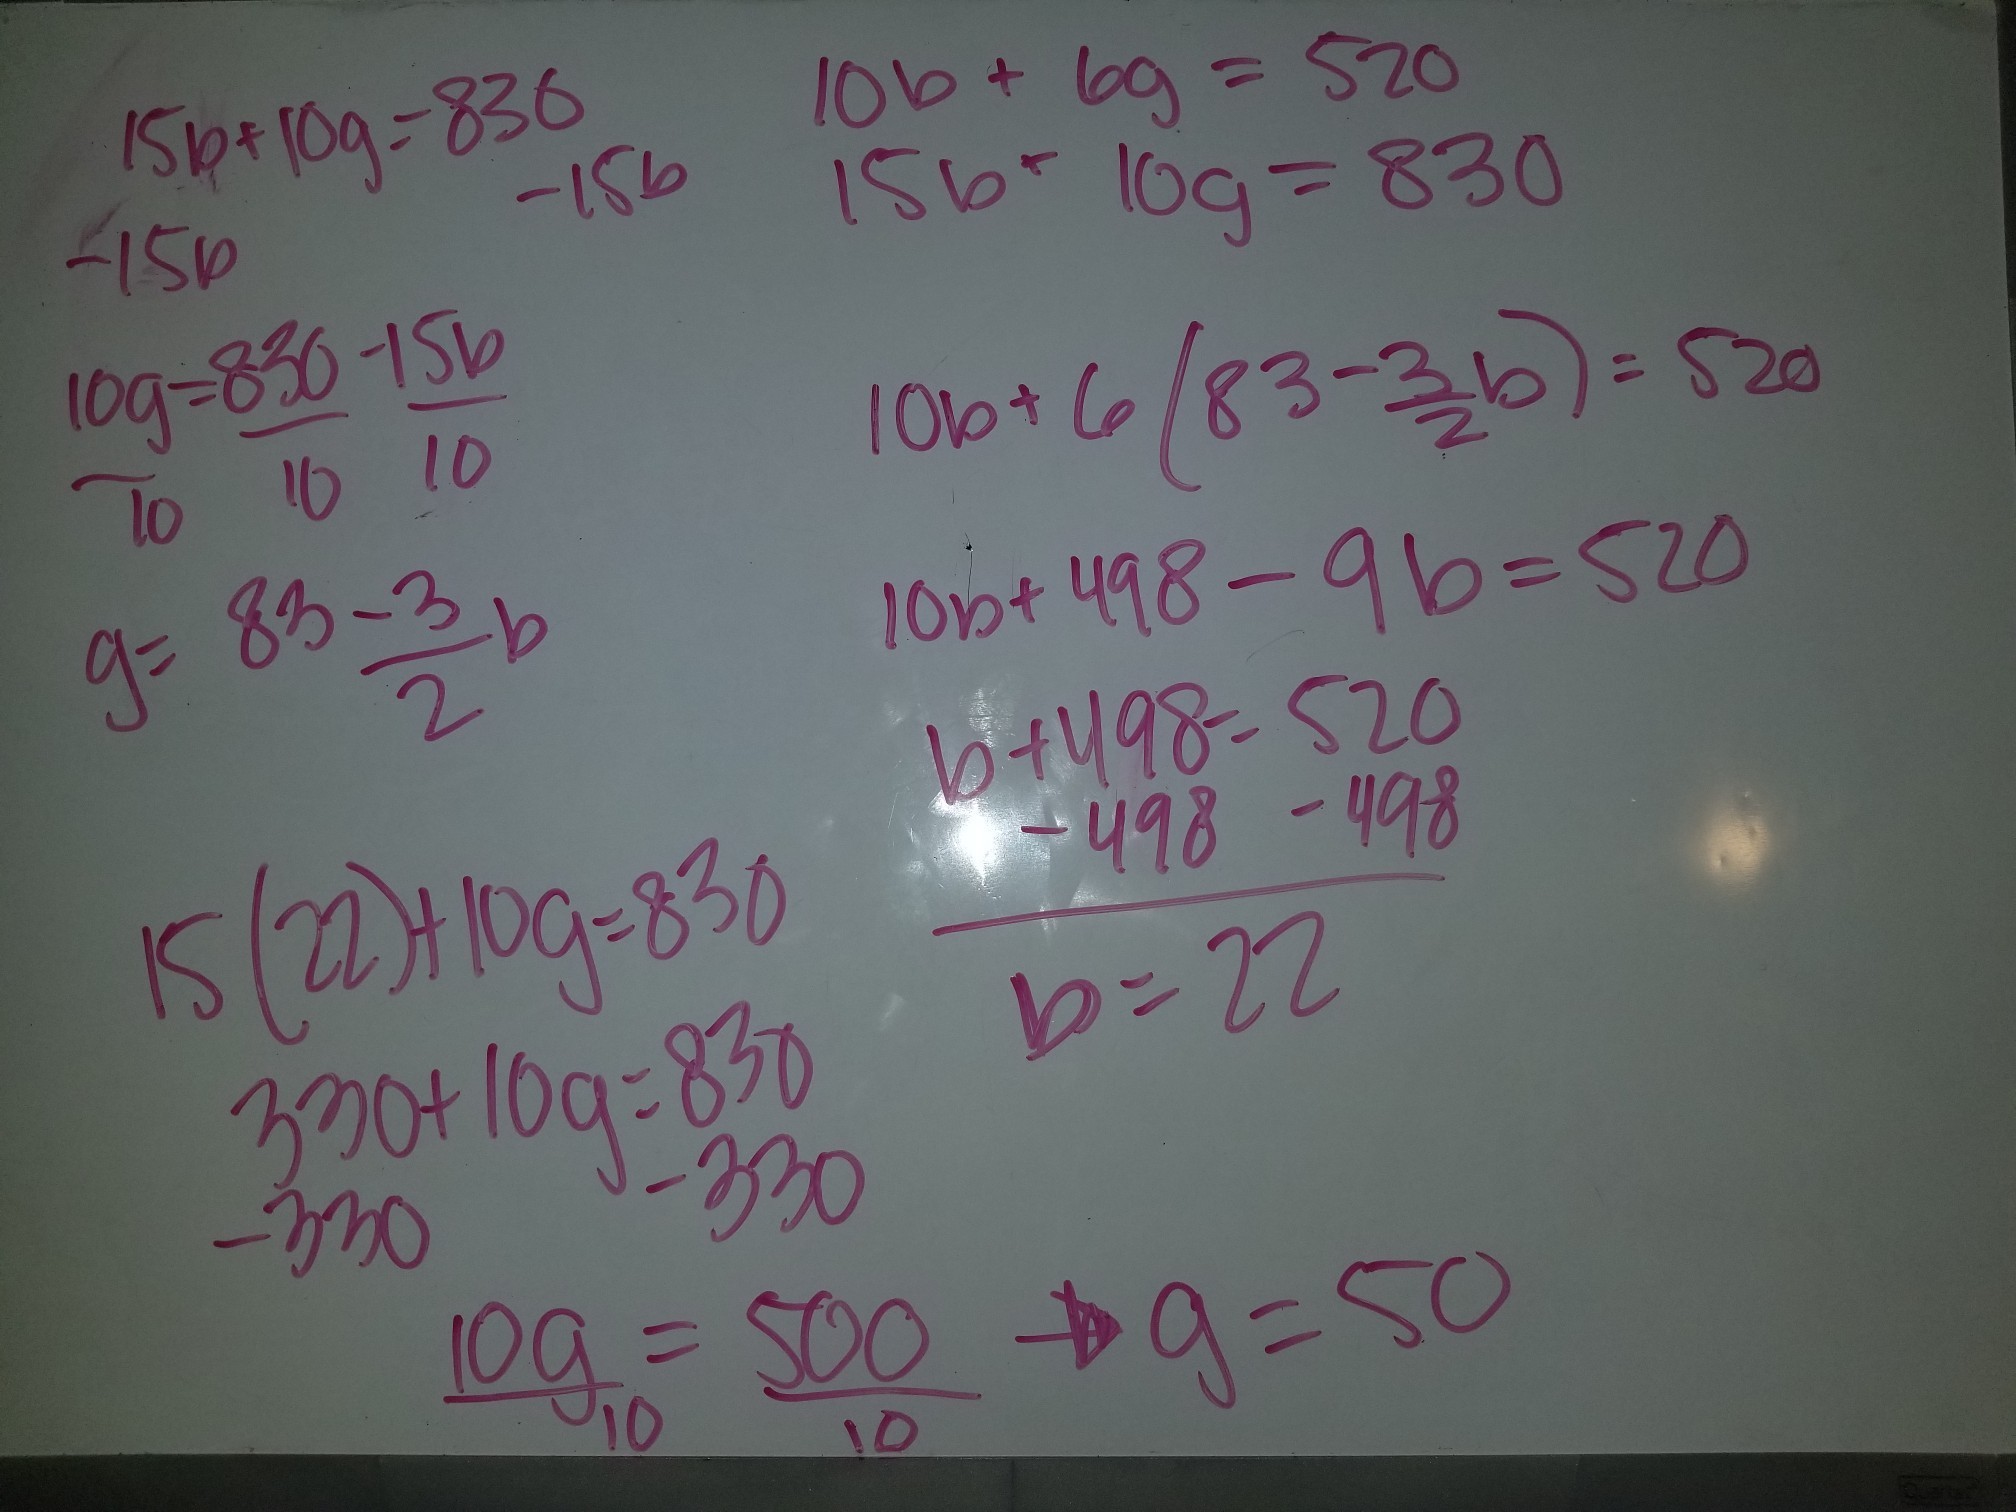 10b + 6g = 520
15b + 10g = 830
15b + 10g = 830
-15b
-15b
10g = 830 - 15b
10 10 10
g = 83 - 3/2 b
10b + 6(83 - 3/2 b) = 520
10b + 498 - 9b = 520
b + 498 = 520
- 498 - 498
b = 22
15(22) + 10g = 830
330 + 10g = 830
-330 -330
10g = 500 → g = 50
10 10